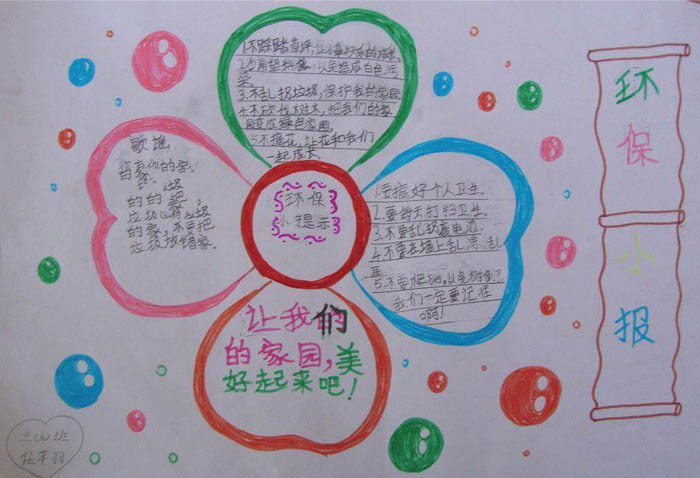 环
保
小
报
环保
小提示
1.不踩踏草坪,让小草快乐的成长。
2.少用塑料袋,以免造成白色污
染。
3.不乱扔垃圾,保护我的家园
4.不砍伐树木,把我们的家
园变成绿色家园。
5不摘花,让花和我们
一起成长
歌谣
你的家
垃圾
的的
垃圾也有垃圾
的家,不要把
垃圾放错家。
1.要搞好个人卫生。
2.要每天打扫卫生。
3.不要乱扔废电池。
4.不要在墙上乱涂,乱
画
5.不要爬树,以免树倒了
我们一定要记住
啊!
让我们
的家园,美
好起来吧!
三(5)班